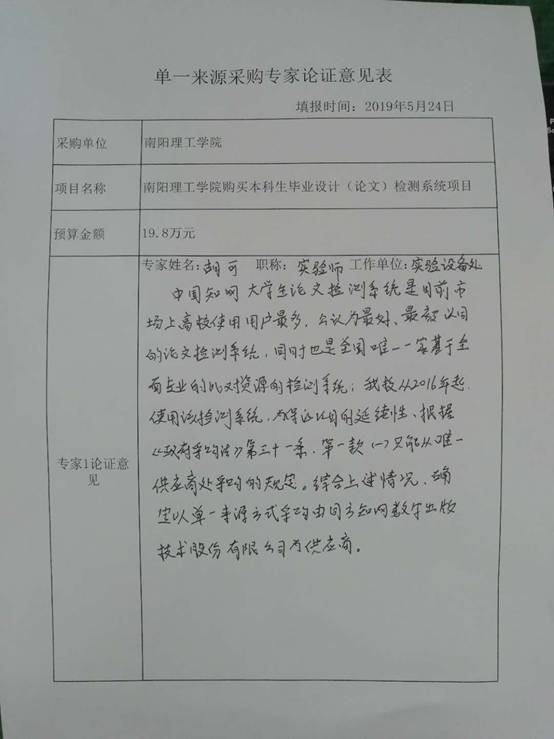 单一来源采购专家论证意见表
填报时间：2019年5月24日
采购单位 南阳理工学院
项目名称 南阳理工学院购买本科生毕业设计（论文）检测系统项目
预算金额 19.8万元
专家姓名：胡可 职称：实验师 工作单位：实验设备处
专家1论证意见
中国知网大学生论文检测系统是目前市
场上高校使用用户最多，公认为最好、最
的论文检测系统，同时也是全国唯一一家基于全
面专业的比对资源的检测系统；我校从2016年起
使用该检测系统，为保证项目的延续性、根据
《政府采购法》第三十一条，第一款（一）只能从唯一
供应商处采购的规定。综合上述情况，确
定以单一来源方式采购由同方知网数字出版
技术股份有限公司为供应商。